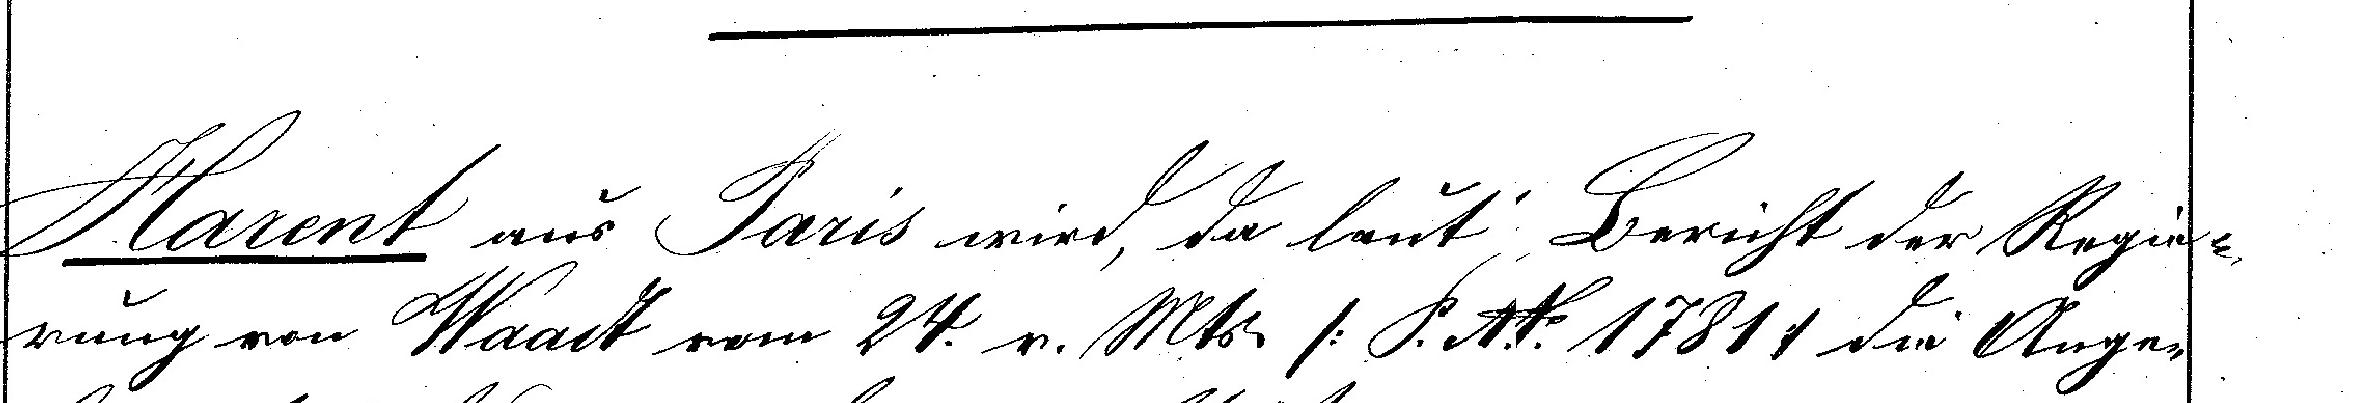 Harent aus Paris wird, da laut Bericht der Regie-
rung von Waadt vom 24. v. Mts. /: P. No. 1781 :/ die Ange-